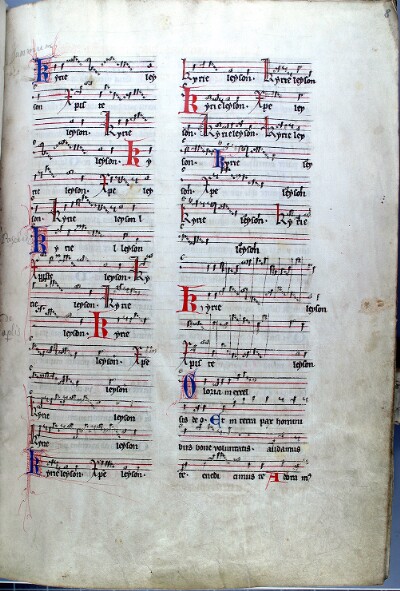 8
Kyrie ley
son Xpis te
leyson. Kyrie
leyson. Ky
rie leyson. Xpe ley
son. Kyrie leyson
Ky rie leyson
Xpiste leyson. Ky
rie leyson. Kyrie
leyson. Kyrie
leyson. Xpe
leyson
Kyrie leyson
Kyrie leyson
Kyrie leyson. Xpe leyson.
Kyrie leyson. Kyrie leyson.
Kyrie leyson. Xpe ley
son. Kyrie leyson. Kyrie ley
son. Kyrie ley
son. Xpe leyson
Kyrie leyson. Kyrie
leyson
Kyrie leyson
Xpis te leyson
Gloria in excel
sis deo. Et in terra pax homini
bus bone voluntatis. audamus
te. enedi cimus te Adora mus